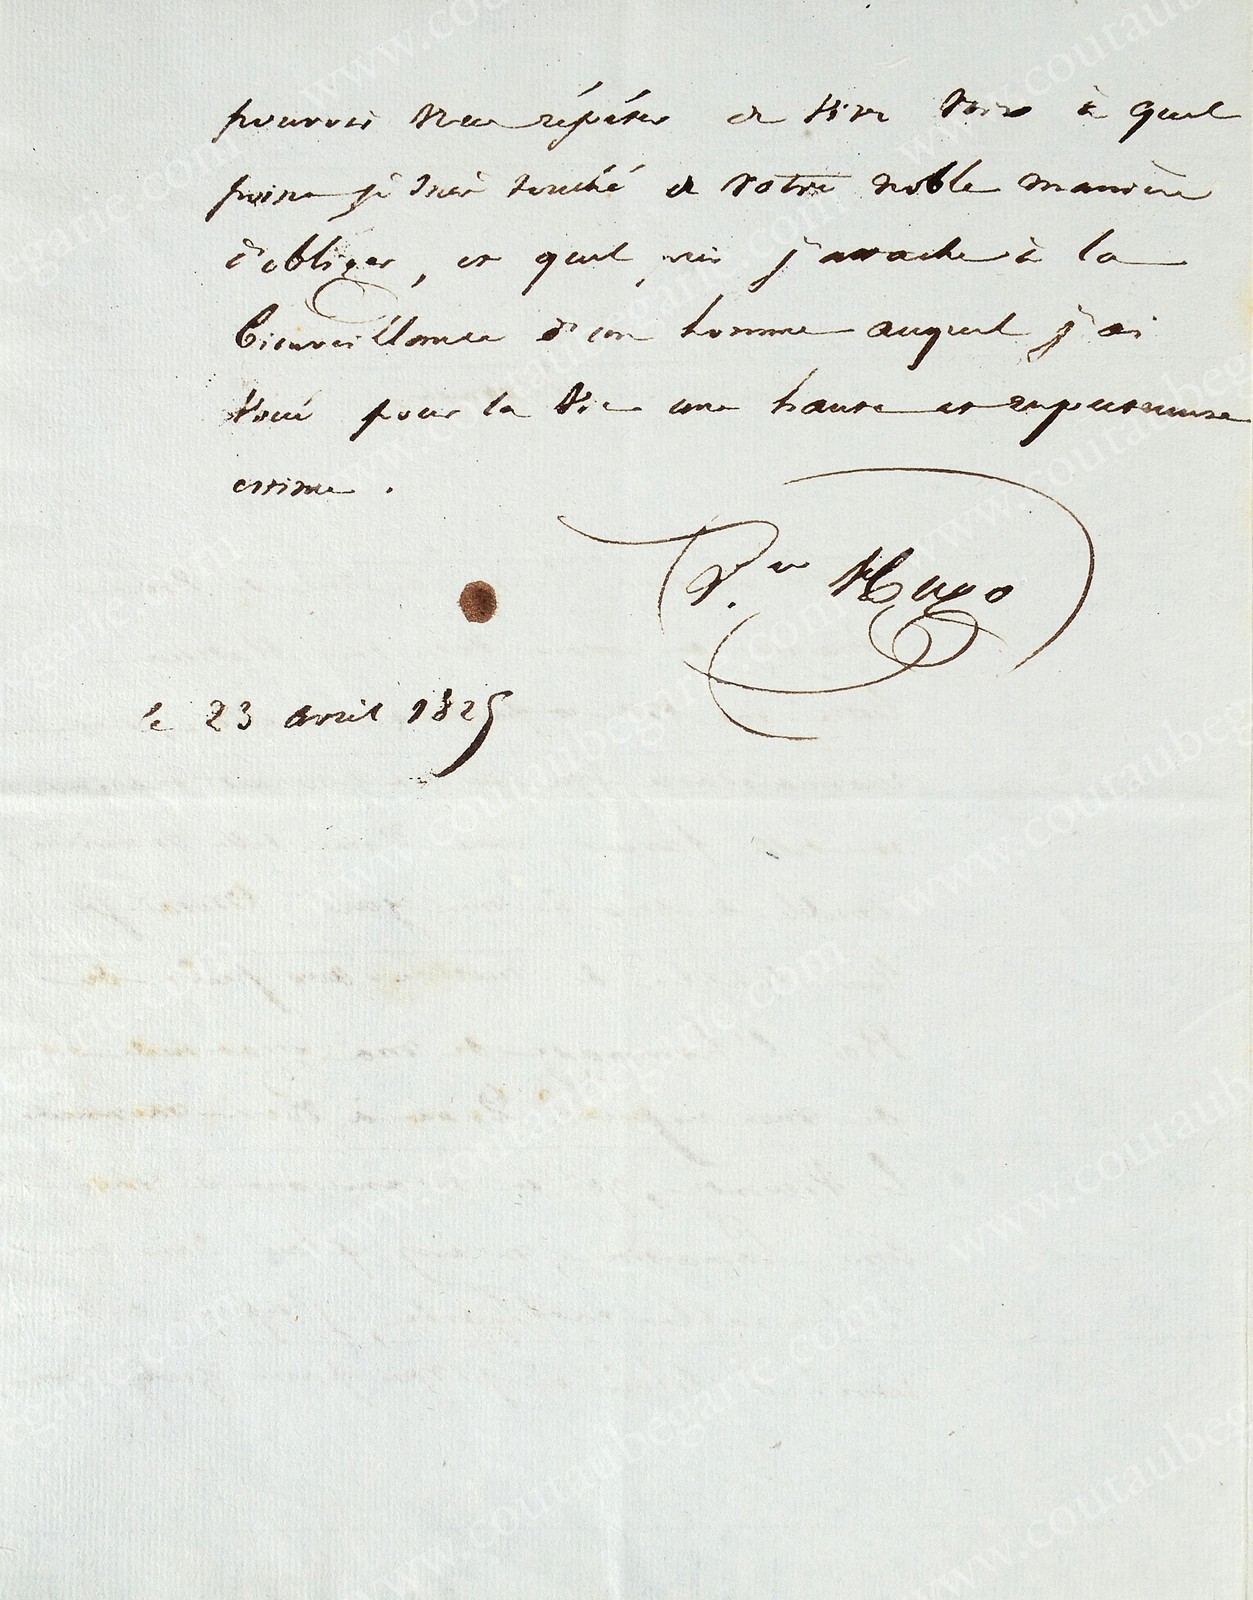 pouvoir vous répéter de vive voix à quel
point je suis touché de votre noble manière
d'obliger, et quel prix j'attache à la
bienveillance d'un homme auquel j'ai
voué pour la vie une haute et respectueuse
estime.
V.or Hugo
le 23 avril 1825
www.coutaubegarie.com